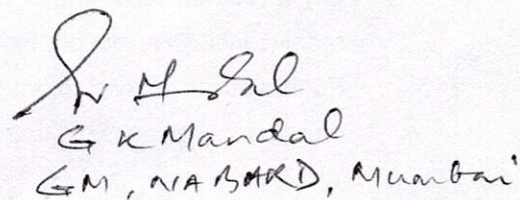 G K Mandal
GM, NABARD, Mumbai